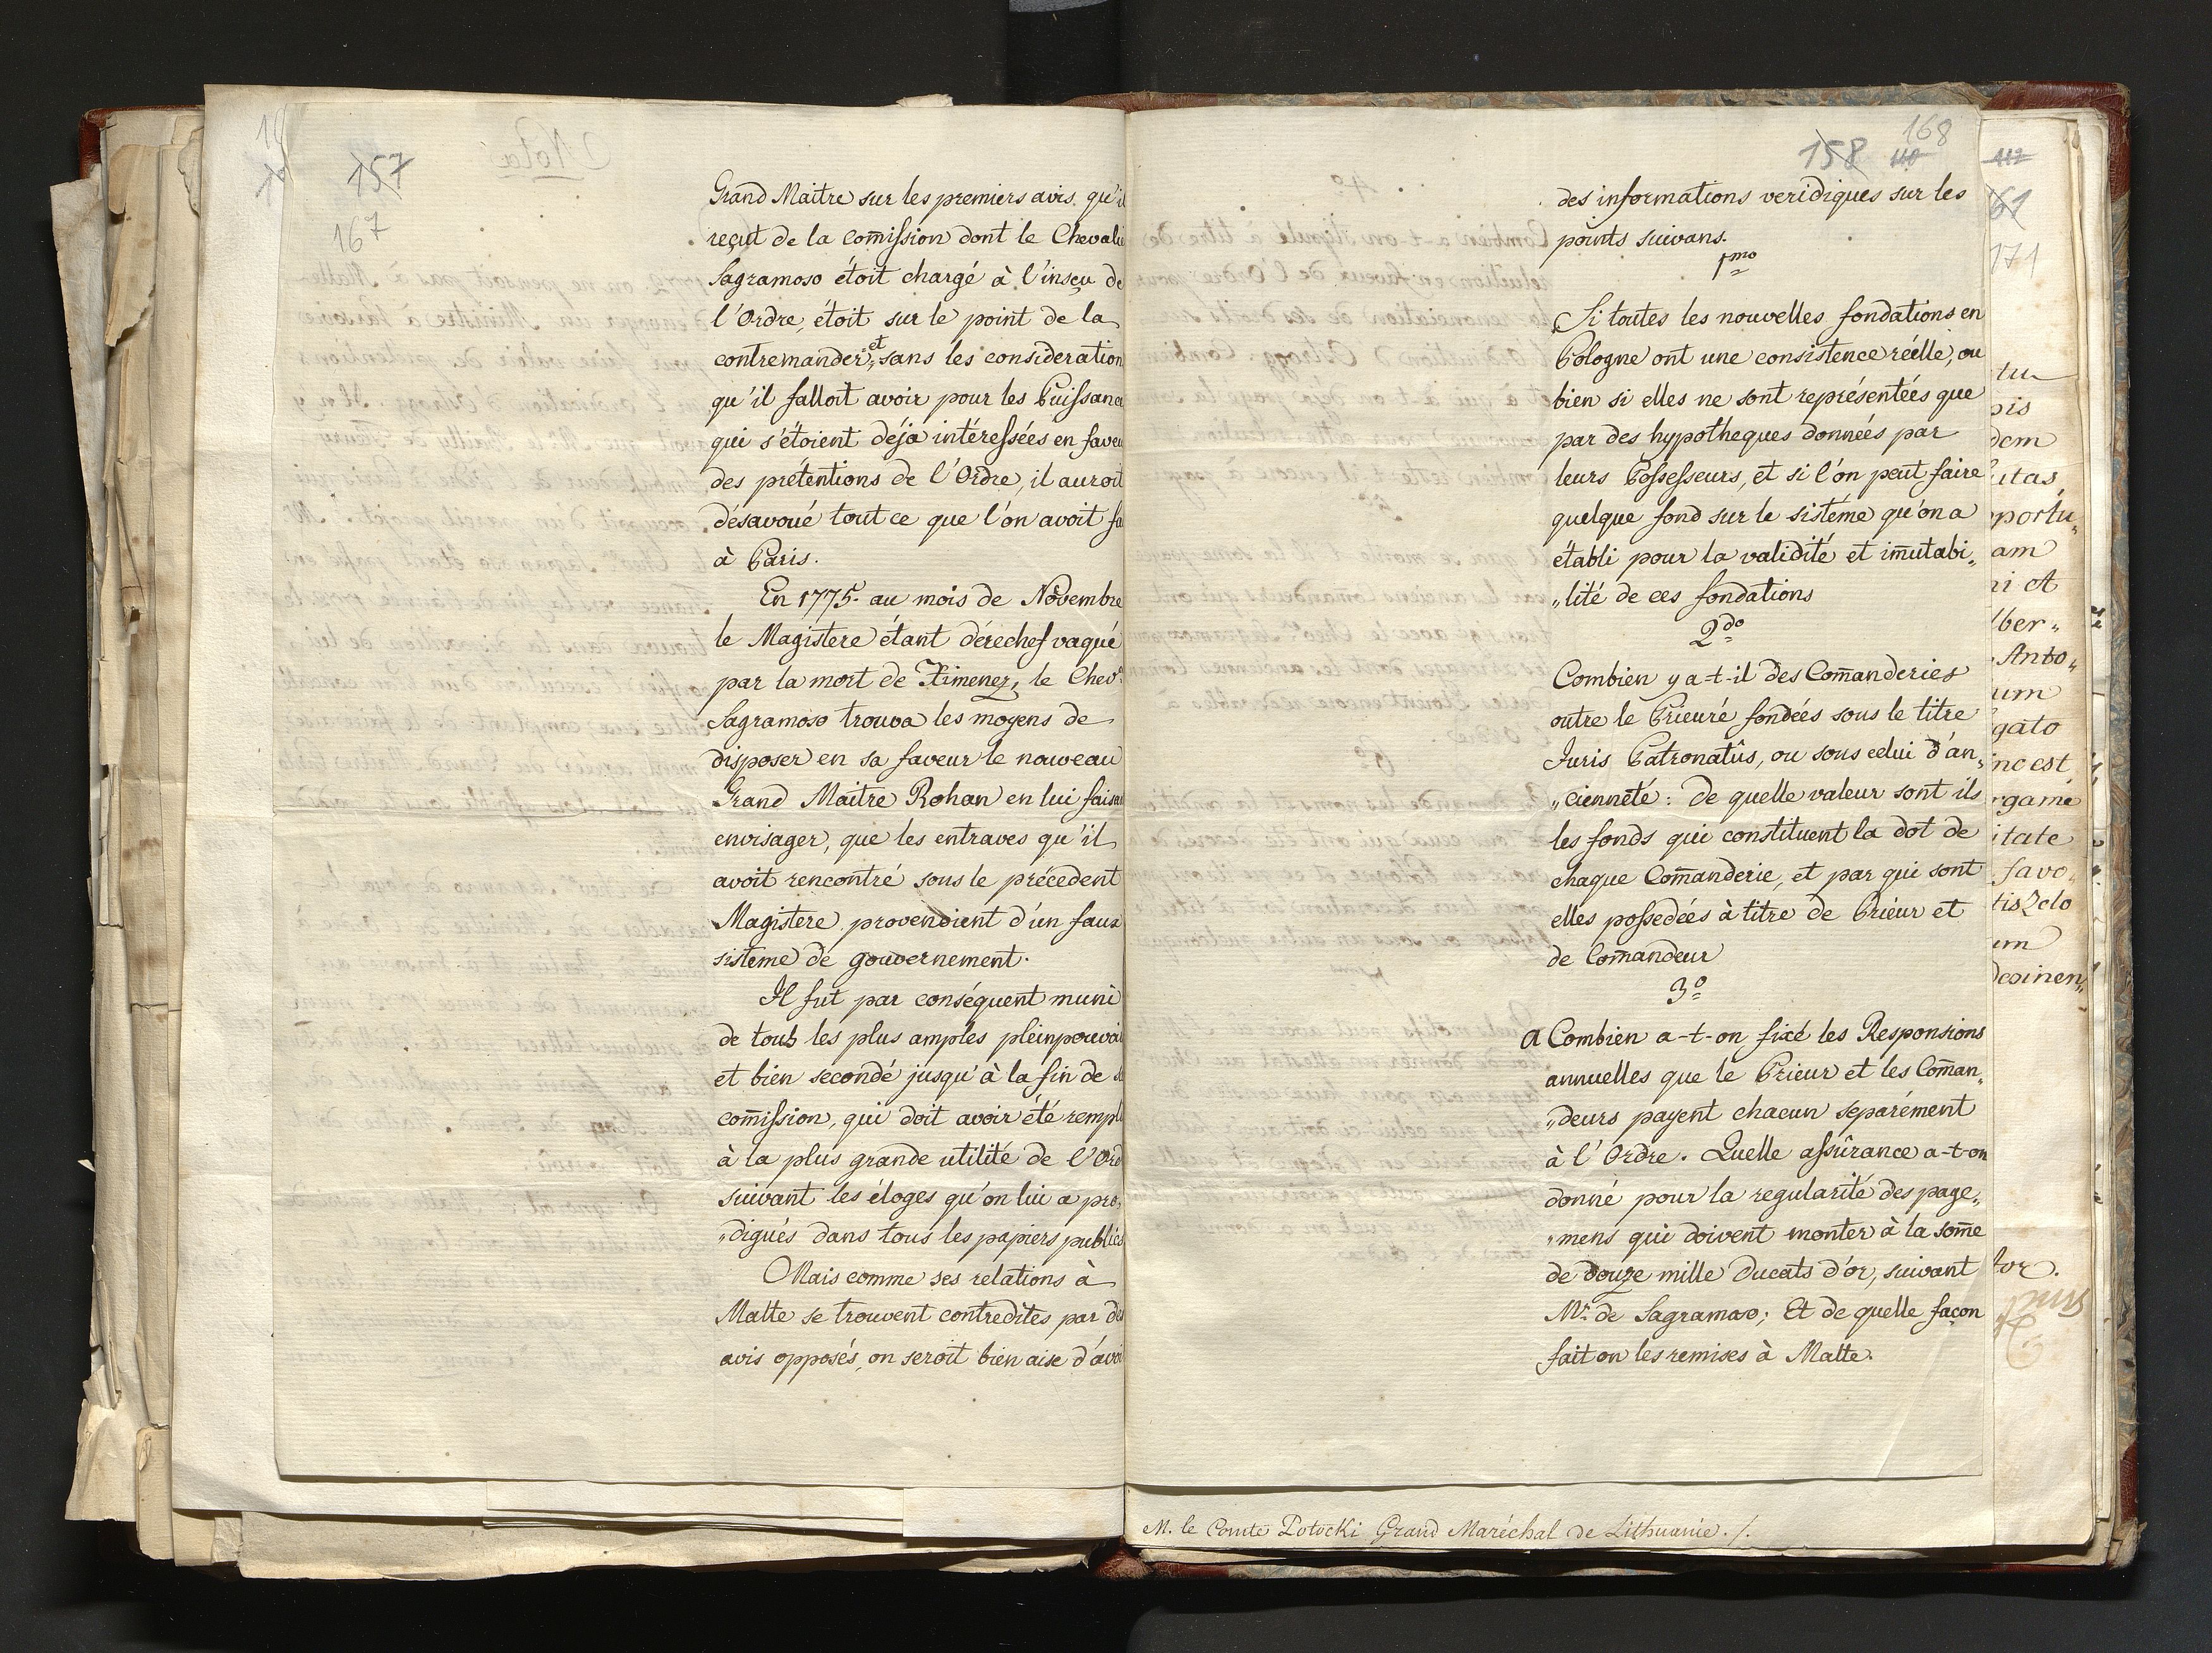 157
167
Grand Maitre sur les premiers avis, qu'il
reçut de la com̅ission dont le Chevalie
Sagramoso étoit chargé à l'insçu de
l'Ordre, étoit sur le point de la
contremander, et sans les consideration
qu'il falloit avoir pour les Puissance
qui s'étoient déja intéressées en faveu
des prétentions de l'Ordre, il auroit
désavoué tout ce que l'on avoit fa
à Paris.
En 1775. au mois de Novembre
le Magistere étant dérechef vaqué
par la mort de Ximenez, le Chevr.
Sagramoso trouva les moyens de
disposer en sa faveur le nouveau
Grand Maitre Rohan en lui faisa
envisager, que les entraves qu'il
avoit rencontré sous le précedent
Magistere provenoient d'un faux
sisteme de gouvernement.
Il fut par conséquent muni
de tous les plus amples pleinpouvoi
et bien secondé jusqu'à la fin de s
com̅ission, qui doit avoir été rempl
à la plus grande utilité de l'Ord
suivant les éloges qu'on lui a pro„
„digués dans tous les papiers publics
Mais comme ses relations à
Malte se trouvent contredites par de
avis opposés, on seroit bien aise d'avoi
168
158 110
des informations veridiques sur les
points suivans.
1mo
Si toutes les nouvelles fondations en
Pologne ont une consistence réelle, ou
bien si elles ne sont représentées que
par des hypotheques données par
leurs Possesseurs, et si l'on peut faire
quelque fond sur le sistéme qu'on a
établi pour la validité et im̅utabi„
„lité de ces fondations
2do
Combien y a-t-il des Com̅anderies
outre le Prieuré fondées sous le titre
Juris Patronatûs, ou sous celui d'an„
„cienneté: de quelle valeur sont ils
les fonds qui constituent la dot de
chaque Com̅anderie, et par qui sont
elles possedées à titre de Prieur et
de Com̅andeur
3o
A Combien a-t-on fixé les Responsions
annuelles que le Prieur et les Com̅an„
„deurs payent chacun separément
à l'Ordre. Quelle assûrance a-t-on
donné pour la regularité des page„
„mens qui doivent monter à la som̅e
de douze mille Ducats d'or, suivant
Mr. de Sagramoso; Et de quelle façon
fait on les remises à Malte.
M. le Comte Potocki Grand Maréchal de Lithuanie. /.
112
161
171
tu
pis
dem
utas,
portu„
am
ni A
lber„
Anto„
um
gato
inc est
rgame
itate
favo„
tis Zelo
um
desinen„
tor.